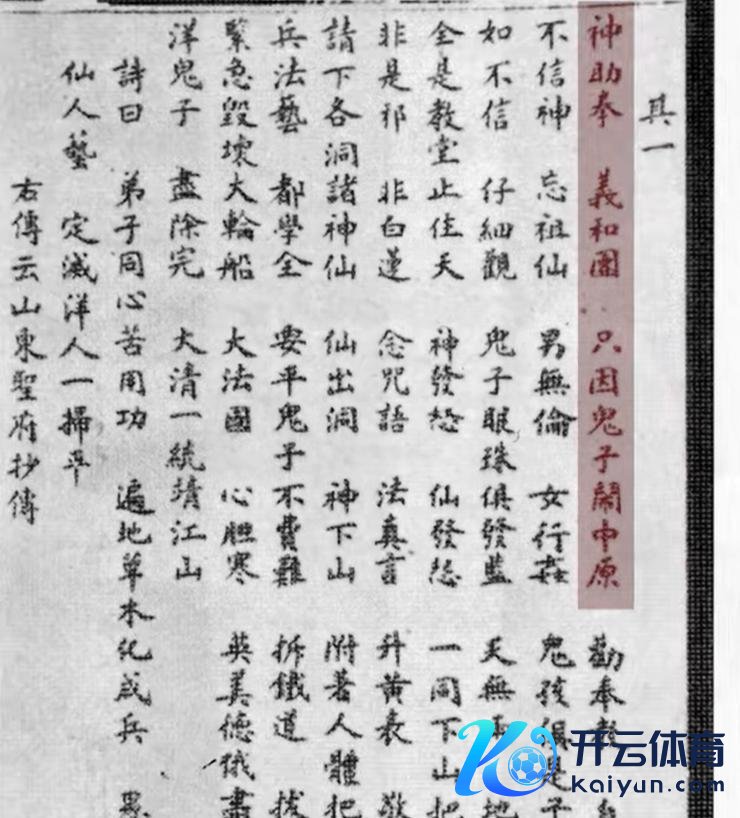 其一
神助奉 義和團 只因鬼子鬧中原 勸奉教
不信神 忘祖仙 男無倫 女行姦 鬼孩俱是子
如不信 仔細觀 鬼子眼珠俱發藍 天無 地
全是教堂止住天 神發怒 仙發怒 一同下山把
非是邪 非白蓮 念咒語 法真言 升黃表 敬
請下各洞諸神仙 仙出洞 神下山 附著人體把
兵法藝 都學全 要平鬼子不費難 拆鐵道 拔
緊急毀壞大輪船 大法國 心胆寒 英美德俄盡
洋鬼子 盡除完 大清一統靖江山
詩曰 弟子同心苦用功 遍地草木化成兵 愚
仙人藝 定滅洋人一掃平
右傳云山東聖府抄傳
开云体育
kaiyun.com